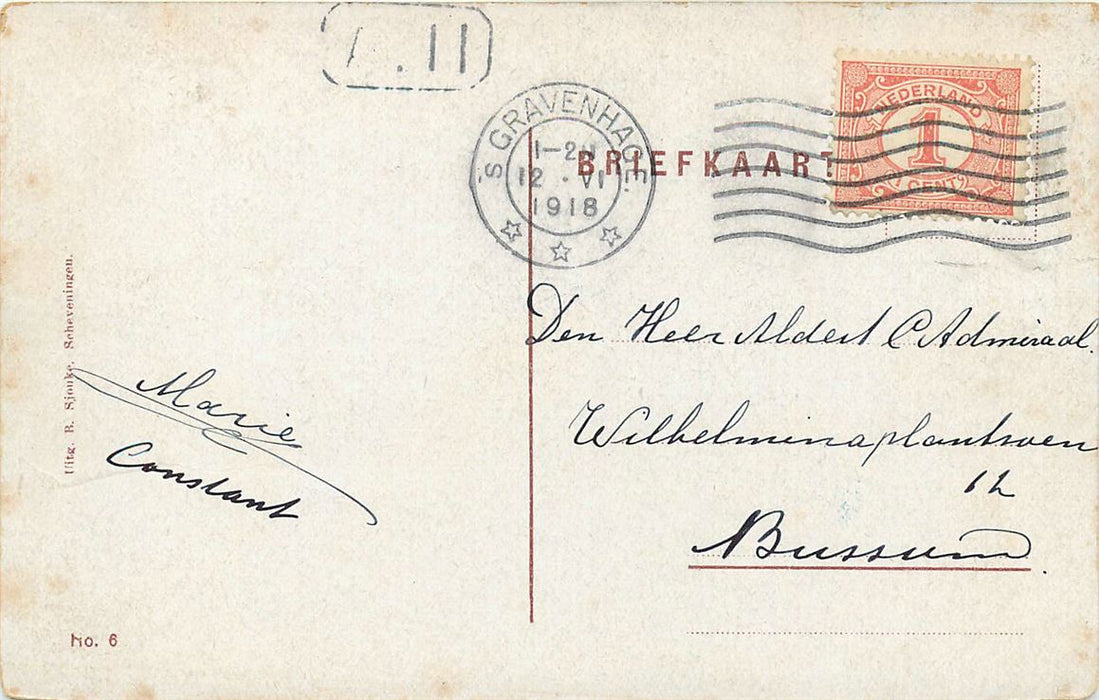 'S GRAVENHAGE.
12 · VI
1918
BRIEFKAART
NEDERLAND
1
1 CENT
Den Heer Aldert C Admiraal.
Wilhelminaplantsoen
12
Bussum.
Marie
Constant
Uitg. R. Sjouke, Scheveningen.
No. 6